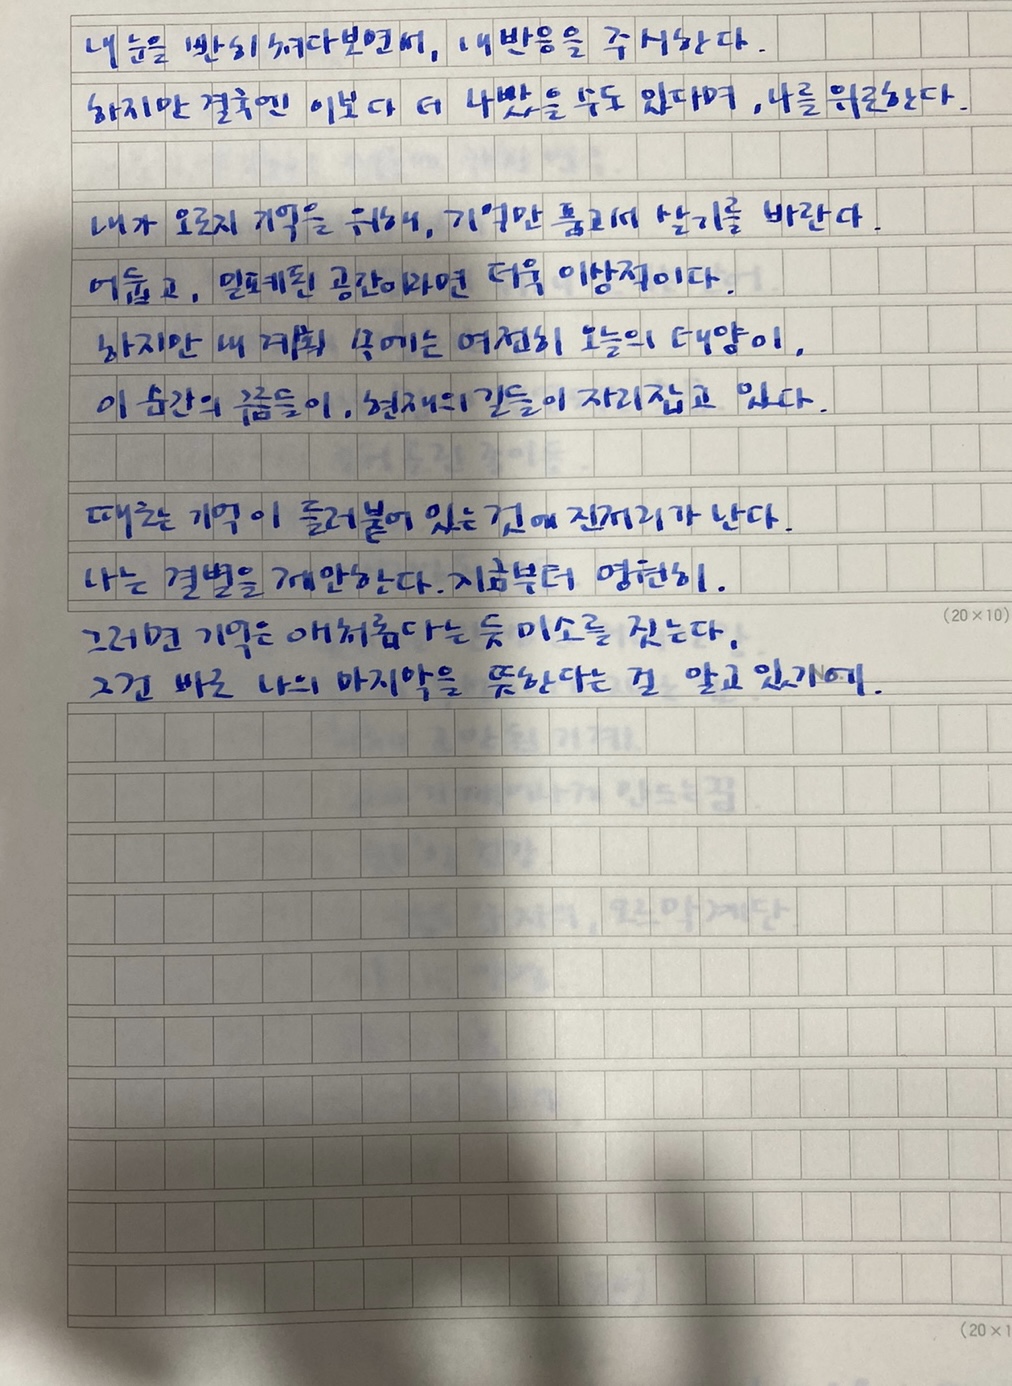 내 눈을 빤히 쳐다보면서, 내 반응을 주시한다.
하지만 결국엔 이보다 더 나빴을 수도 있다며, 나를 위로한다.
내가 오로지 기억을 위해, 기억만 품고서 살기를 바란다.
어둡고, 밀폐된 공간이라면 더욱 이상적이다.
하지만 내 계획 속에는 여전히 오늘의 태양이,
이 순간의 구름들이, 현재의 길들이 자리잡고 있다.
때로는 기억이 들러붙어 있는 것에 진저리가 난다.
나는 결별을 제안한다. 지금부터 영원히.
그러면 기억은 애처롭다는 듯 미소를 짓는다,
그건 바로 나의 마지막을 뜻한다는 걸 알고 있기에.
(20×10)
(20×1